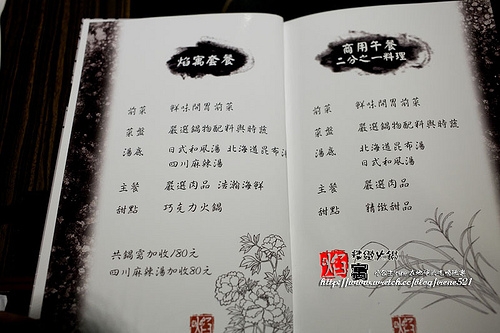 焰窩套餐
前菜 鮮味開胃前菜
菜盤 嚴選鍋物配料與時蔬
湯底 日式和風湯 北海道昆布湯
四川麻辣湯
主餐 嚴選肉品 浩瀚海鮮
甜點 巧克力火鍋
共鍋需加收180元
四川麻辣湯加收80元
商用午餐
二分之一料理
前菜 鮮味開胃前菜
菜盤 嚴選鍋物配料與時蔬
湯底 北海道昆布湯
日式和風湯
主餐 嚴選肉品
甜點 精緻甜品
焰窩
http://www.wretch.cc/blog/irene521